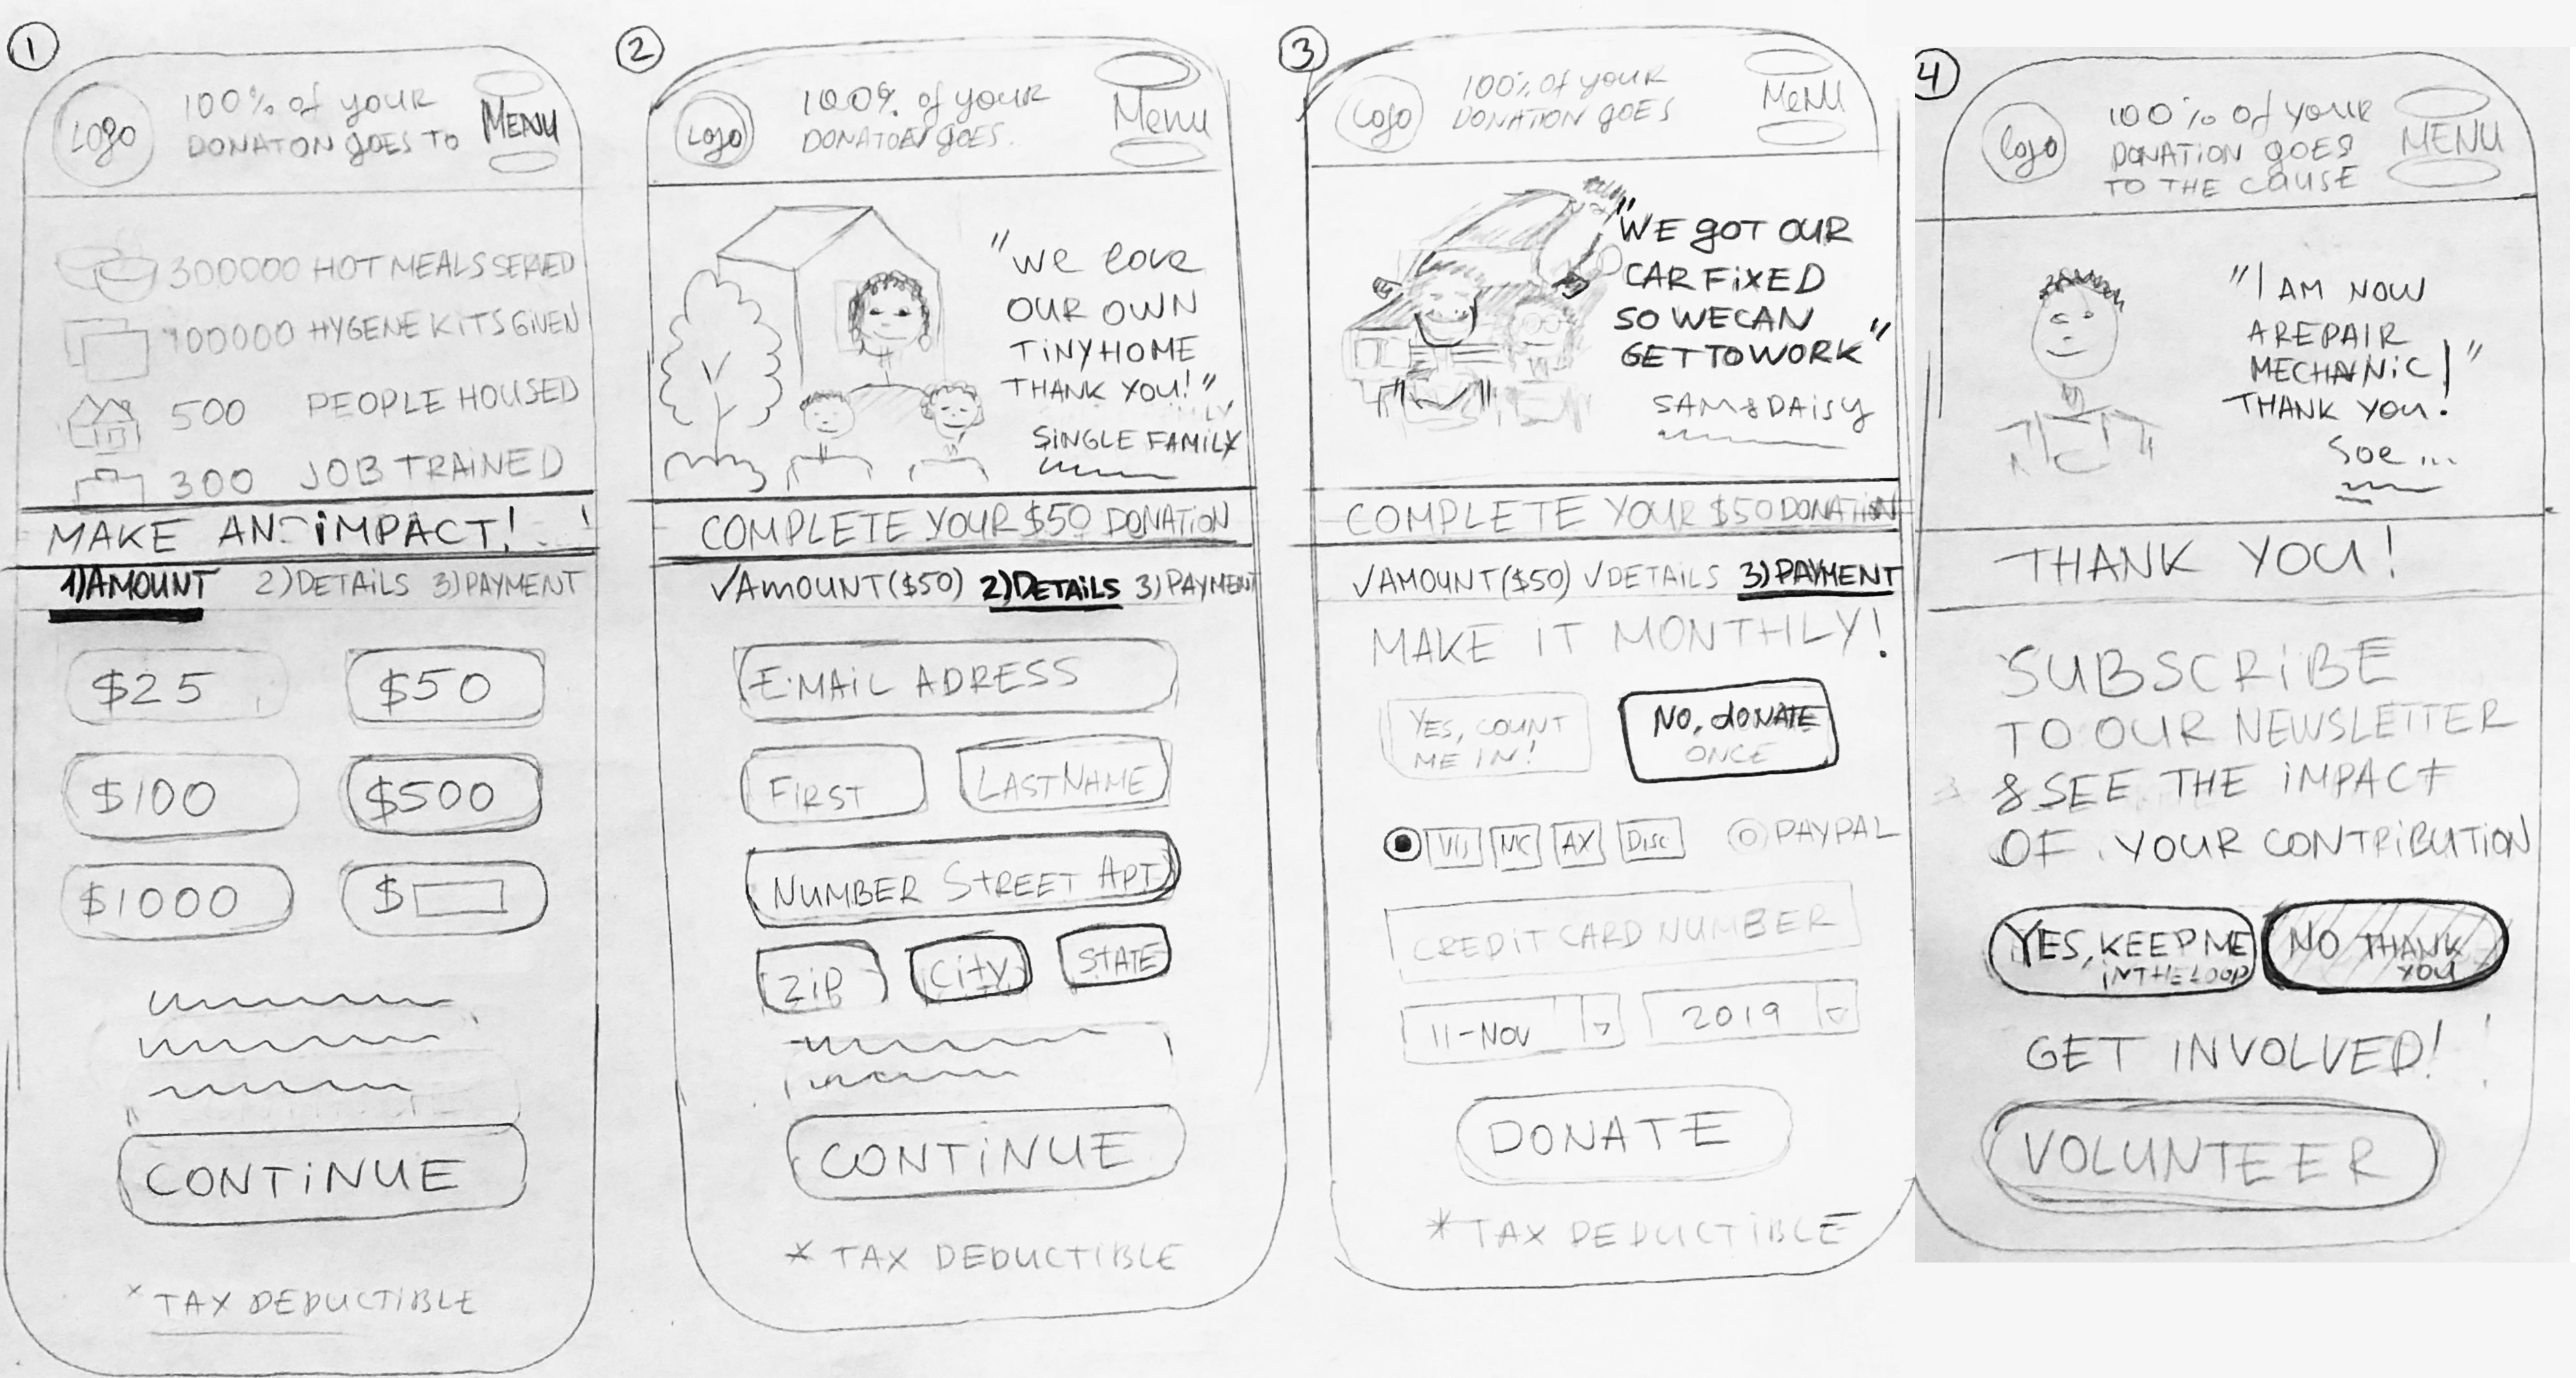 1
LOGO
100% of YOUR
DONATON GOES TO
MENU
300000 HOT MEALS SERVED
100000 HYGENE KITS GIVEN
500 PEOPLE HOUSED
300 JOB TRAINED
MAKE AN IMPACT!
1) AMOUNT 2) DETAILS 3) PAYMENT
$25 $50
$100 $500
$1000 $
CONTINUE
* TAX DEDUCTIBLE
2
LOGO
100% of YOUR
GOES.
Menu
"We love
OUR OWN
TINY HOME
THANK YOU!"
SINGLE FAMILY
COMPLETE YOUR $50 DONATION
✓AMOUNT ($50) 2) DETAILS 3) PAYMENT
E-MAIL ADRESS
FIRST LAST NAME
NUMBER STREET APT
ZIP CITY STATE
CONTINUE
* TAX DEDUCTIBLE
3
LOGO
100% of YOUR
DONATION GOES
MENU
"WE GOT OUR
CAR FIXED
SO WE CAN
GET TO WORK"
SAM & DAISY
COMPLETE YOUR $50 DONATION
✓AMOUNT ($50) ✓DETAILS 3) PAYMENT
MAKE IT MONTHLY!
YES, COUNT
ME IN!
NO, dONATE
ONCE
MC AX DISC PAYPAL
CREDIT CARD NUMBER
11-NOV 2019
DONATE
* TAX DEDUCTIBLE
4
logo
100% of YOUR
DONATION GOES
TO THE CAUSE
MENU
"I AM NOW
A REPAIR
MECHANIC!"
THANK YOU!
Soe...
THANK YOU!
SUBSCRIBE
TO OUR NEWSLETTER
& SEE THE IMPACT
OF YOUR CONTRIBUTION
YES, KEEP ME
IN THE LOOP
NO THANK
YOU
GET INVOLVED!
VOLUNTEER